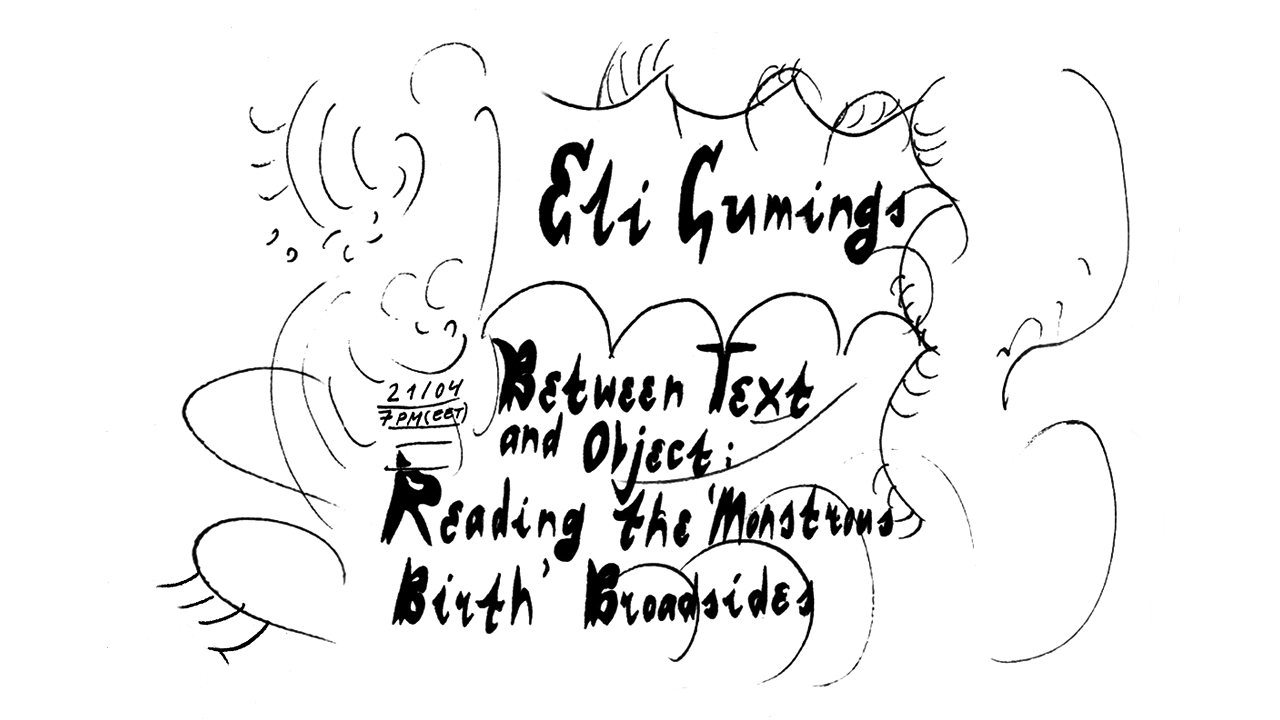 Eli Cumings
21/04
7PM(EET)
Between Text
and Object:
Reading the 'Monstrous
Birth' Broadsides